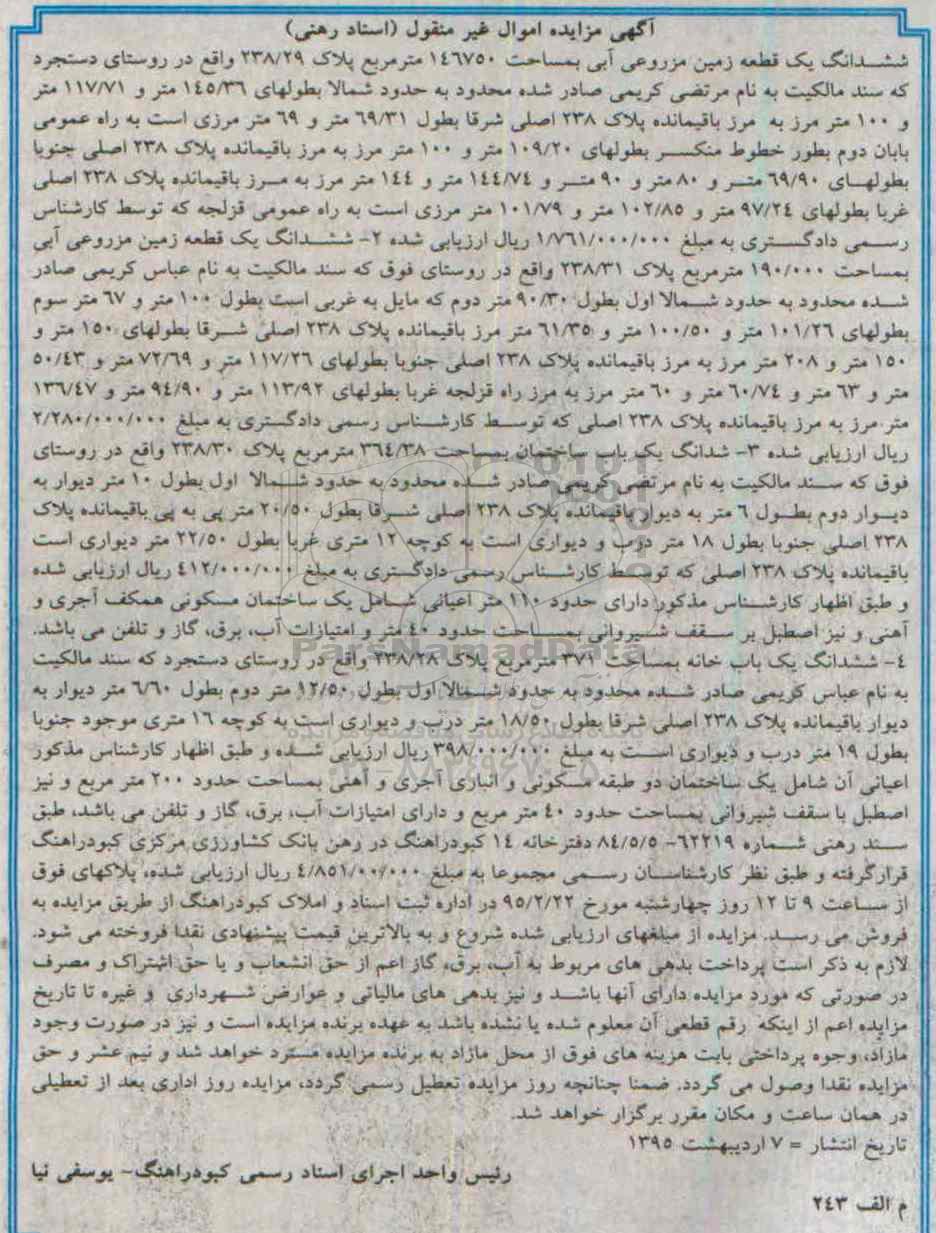 آگهی مزایده اموال غیر منقول (اسناد رهنی)
ششدانگ یک قطعه زمین مزروعی آبی بمساحت ۱۴۶۷۵۰ مترمربع پلاک ۲۳۸/۲۹ واقع در روستای دستجرد
که سند مالکیت به نام مرتضی کریمی صادر شده محدود به حدود شمالا بطولهای ۱۴۵/۳۶ متر و ۱۱۷/۷۱ متر
و ۱۰۰ متر مرز به مرز باقیمانده پلاک ۲۳۸ اصلی شرقا بطول ۶۹/۳۱ متر و ۶۹ متر مرزی است به راه عمومی
بابان دوم بطور خطوط منکسر بطولهای ۱۰۹/۲۰ متر و ۱۰۰ متر مرز به مرز باقیمانده پلاک ۲۳۸ اصلی جنوبا
بطولهای ۶۹/۹۰ متر و ۸۰ متر و ۹۰ متر و ۱۴۴/۷۴ متر و ۱۴۴ متر مرز به مرز باقیمانده پلاک ۲۳۸ اصلی
غربا بطولهای ۹۷/۲۴ متر و ۱۰۲/۸۵ متر و ۱۰۱/۷۹ متر مرزی است به راه عمومی قزلجه که توسط کارشناس
رسمی دادگستری به مبلغ ۱/۷۶۱/۰۰۰/۰۰۰ ریال ارزیابی شده ۲- ششدانگ یک قطعه زمین مزروعی آبی
بمساحت ۱۹۰/۰۰۰ مترمربع پلاک ۲۳۸/۳۱ واقع در روستای فوق که سند مالکیت به نام عباس کریمی صادر
شده محدود به حدود شمالا اول بطول ۹۰/۳۰ متر دوم که مایل به غربی است بطول ۱۰۰ متر و ۶۷ متر سوم
بطولهای ۱۰۱/۲۶ متر و ۱۰۰/۵۰ متر و ۶۱/۳۵ متر مرز باقیمانده پلاک ۲۳۸ اصلی شرقا بطولهای ۱۵۰ متر و
۱۵۰ متر و ۲۰۸ متر مرز به مرز باقیمانده پلاک ۲۳۸ اصلی جنوبا بطولهای ۱۱۷/۲۶ متر و ۷۲/۶۹ متر و ۵۰/۴۳
متر و ۶۳ متر و ۶۰/۷۴ متر و ۶۰ متر مرز به مرز راه قزلجه غربا بطولهای ۱۱۳/۹۲ متر و ۹۴/۹۰ متر و ۱۳۶/۴۷
متر مرز به مرز باقیمانده پلاک ۲۳۸ اصلی که توسط کارشناس رسمی دادگستری به مبلغ ۲/۲۸۰/۰۰۰/۰۰۰
ریال ارزیابی شده ۳- شدانگ یک باب ساختمان بمساحت ۳۶۴/۳۸ مترمربع پلاک ۲۳۸/۳۰ واقع در روستای
فوق که سند مالکیت به نام مرتضی کریمی صادر شده محدود به حدود شمالا اول بطول ۱۰ متر دیوار به
دیوار دوم بطول ۶ متر به دیوار باقیمانده پلاک ۲۳۸ اصلی شرقا بطول ۲۰/۵۰ متر پی به پی باقیمانده پلاک
۲۳۸ اصلی جنوبا بطول ۱۸ متر درب و دیواری است به کوچه ۱۲ متری غربا بطول ۲۲/۵۰ متر دیواری است
باقیمانده پلاک ۲۳۸ اصلی که توسط کارشناس رسمی دادگستری به مبلغ ۴۱۲/۰۰۰/۰۰۰ ریال ارزیابی شده
و طبق اظهار کارشناس مذکور دارای حدود ۱۱۰ متر اعیانی شامل یک ساختمان مسکونی همکف آجری و
آهنی و نیز اصطبل بر سقف شیروانی بمساحت حدود ۴۰ متر و امتیازات آب، برق، گاز و تلفن می باشد.
ParsNamadData
۴- ششدانگ یک باب خانه بمساحت ۳۷۱ مترمربع پلاک ۲۳۸/۲۸ واقع در روستای دستجرد که سند مالکیت
به نام عباس کریمی صادر شده محدود به حدود شمالا اول بطول ۱۲/۵۰ متر دوم بطول ۶/۶۰ متر دیوار به
دیوار باقیمانده پلاک ۲۳۸ اصلی شرقا بطول ۱۸/۵۰ متر درب و دیواری است به کوچه ۱۶ متری موجود جنوبا
بطول ۱۹ متر درب و دیواری است به مبلغ ۳۹۸/۰۰۰/۰۰۰ ریال ارزیابی شده و طبق اظهار کارشناس مذکور
اعیانی آن شامل یک ساختمان دو طبقه مسکونی و انباری آجری و آهنی بمساحت حدود ۲۰۰ متر مربع و نیز
اصطبل با سقف شیروانی بمساحت حدود ۴۰ متر مربع و دارای امتیازات آب، برق، گاز و تلفن می باشد، طبق
سند رهنی شماره ۶۲۲۱۹- ۸۴/۵/۵ دفترخانه ۱۴ کبودراهنگ در رهن بانک کشاورزی مرکزی کبودراهنگ
قرارگرفته و طبق نظر کارشناسان رسمی مجموعا به مبلغ ۴/۸۵۱/۰۰/۰۰۰ ریال ارزیابی شده، پلاکهای فوق
از ساعت ۹ تا ۱۲ روز چهارشنبه مورخ ۹۵/۲/۲۲ در اداره ثبت اسناد و املاک کبودراهنگ از طریق مزایده به
فروش می رسد. مزایده از مبلغهای ارزیابی شده شروع و به بالاترین قیمت پیشنهادی نقدا فروخته می شود.
لازم به ذکر است پرداخت بدهی های مربوط به آب، برق، گاز اعم از حق انشعاب و یا حق اشتراک و مصرف
در صورتی که مورد مزایده دارای آنها باشد و نیز بدهی های مالیاتی و عوارض شهرداری و غیره تا تاریخ
مزایده اعم از اینکه رقم قطعی آن معلوم شده یا نشده باشد به عهده برنده مزایده است و نیز در صورت وجود
مازاد، وجوه پرداختی بابت هزینه های فوق از محل مازاد به برنده مزایده مسترد خواهد شد و نیم عشر و حق
مزایده نقدا وصول می گردد. ضمنا چنانچه روز مزایده تعطیل رسمی گردد، مزایده روز اداری بعد از تعطیلی
در همان ساعت و مکان مقرر برگزار خواهد شد.
تاریخ انتشار = ۷ اردیبهشت ۱۳۹۵
رئیس واحد اجرای اسناد رسمی کبودراهنگ- یوسفی نیا
م الف ۲۴۳